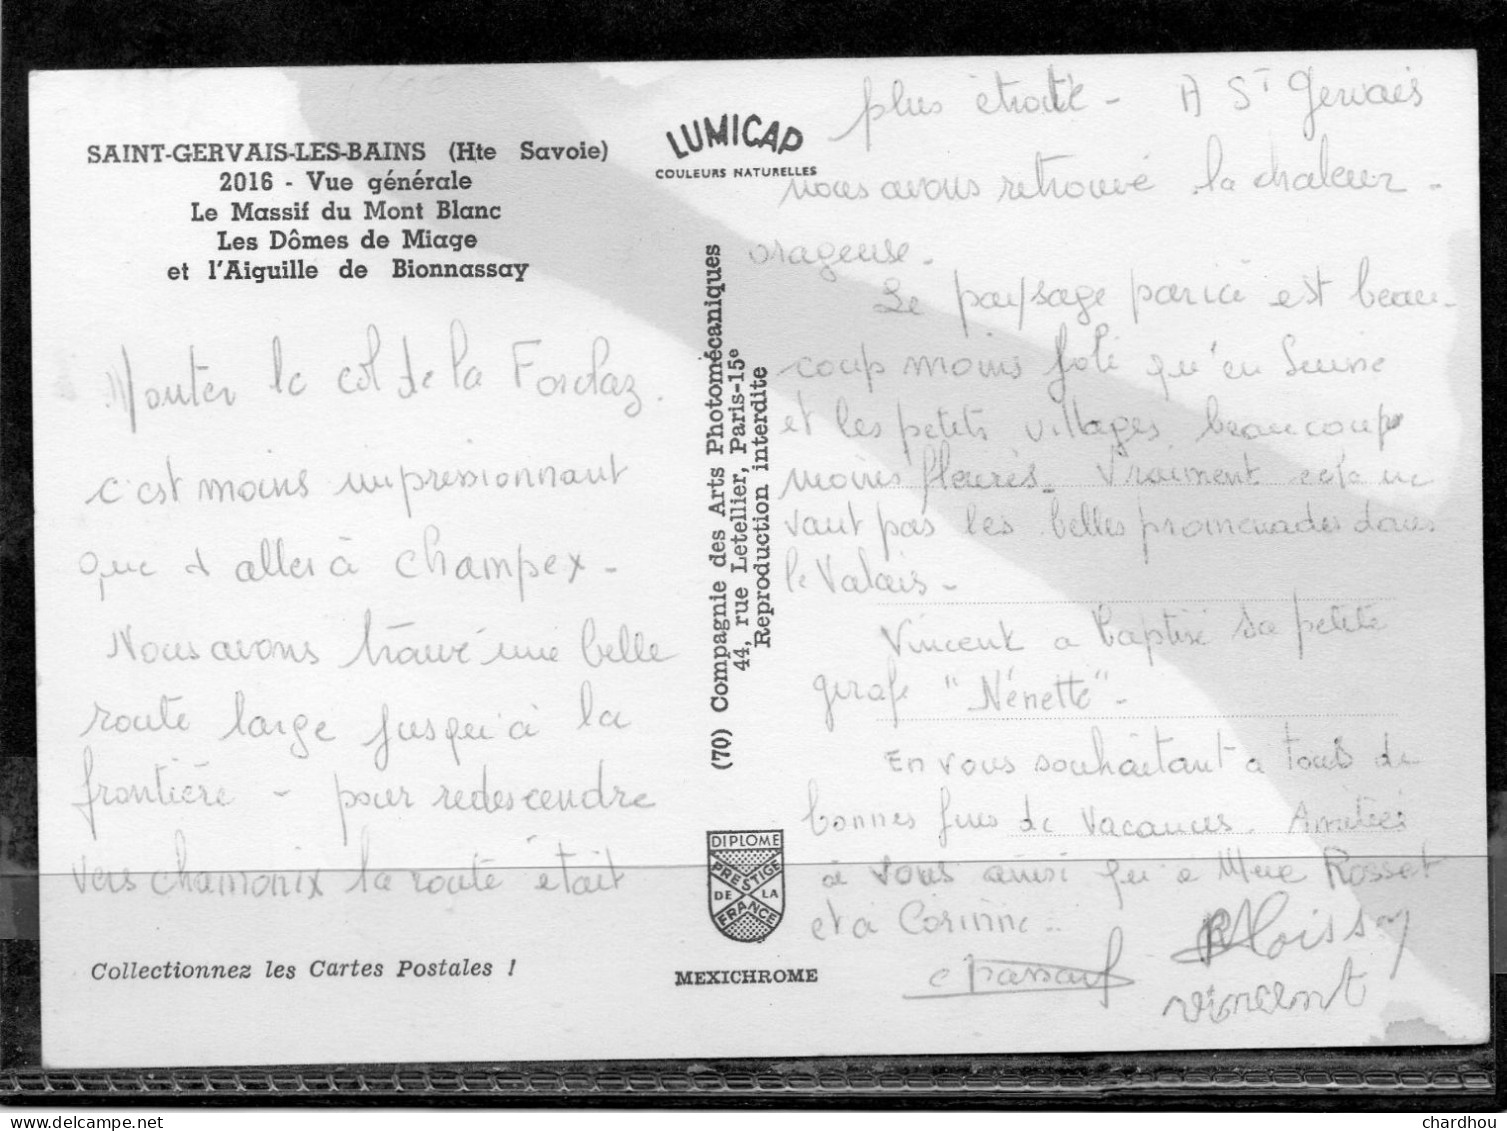 SAINT-GERVAIS-LES-BAINS (Hte Savoie)
2016 - Vue générale
Le Massif du Mont Blanc
Les Dômes de Miage
et l'Aiguille de Bionnassay
Monter le col de la Forclaz.
c'est moins impressionnant
que d'aller à Champex -
Nous avons trouvé une belle
route large jusqu'à la
frontière - pour redescendre
vers chamonix la route était
Collectionnez les Cartes Postales !
LUMICAP
COULEURS NATURELLES
(70) Compagnie des Arts Photomécaniques
44, rue Letellier, Paris-15e
Reproduction interdite
DIPLOME
PRESTIGE
DE LA
FRANCE
MEXICHROME
plus étroite - A St Gervais
nous avons retrouvé la chaleur
orageuse.
Le paysage par ici est beau-
coup moins joli qu'en Suisse
et les petits villages beaucoup
moins fleuris - Vraiment cela ne
vaut pas les belles promenades dans
le Valais -
Vincent a baptisé sa petite
girafe "Nénette" -
En vous souhaitant à tous de
bonnes fins de vacances. Amitiés
à vous ainsi qu'à Mme Rosset
et à Corinne..
Vincent
delcampe.net
chardhou